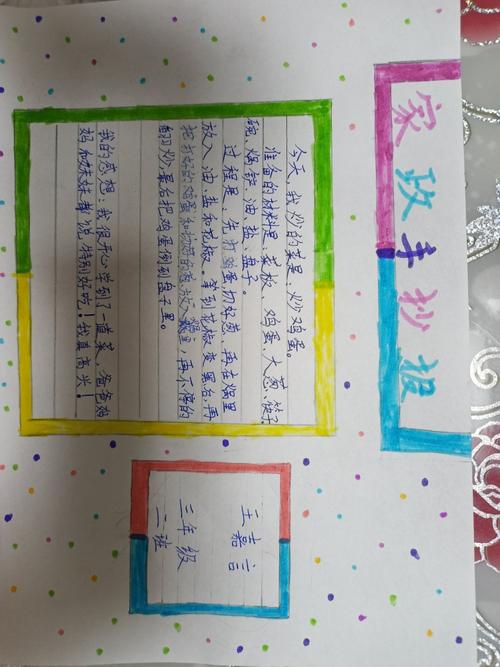 家政手抄报
今天，我炒的菜是：炒鸡蛋。
准备的材料是：菜板、鸡蛋、大葱、筷子、
碗、炀铲、油、盐、盘子。
过程是：先打鸡蛋，切好葱，再在锅里
放入油、盐和花椒。等到花椒变黑后，再
把打好的鸡蛋和切好的葱放入锅里，再不停的
翻炒。最后把鸡蛋倒到盘子里。
我的感想：我很开心学到了一道菜，爸爸妈
妈和妹妹都说特别好吃！我真高兴！
王嘉言
三年级
二班